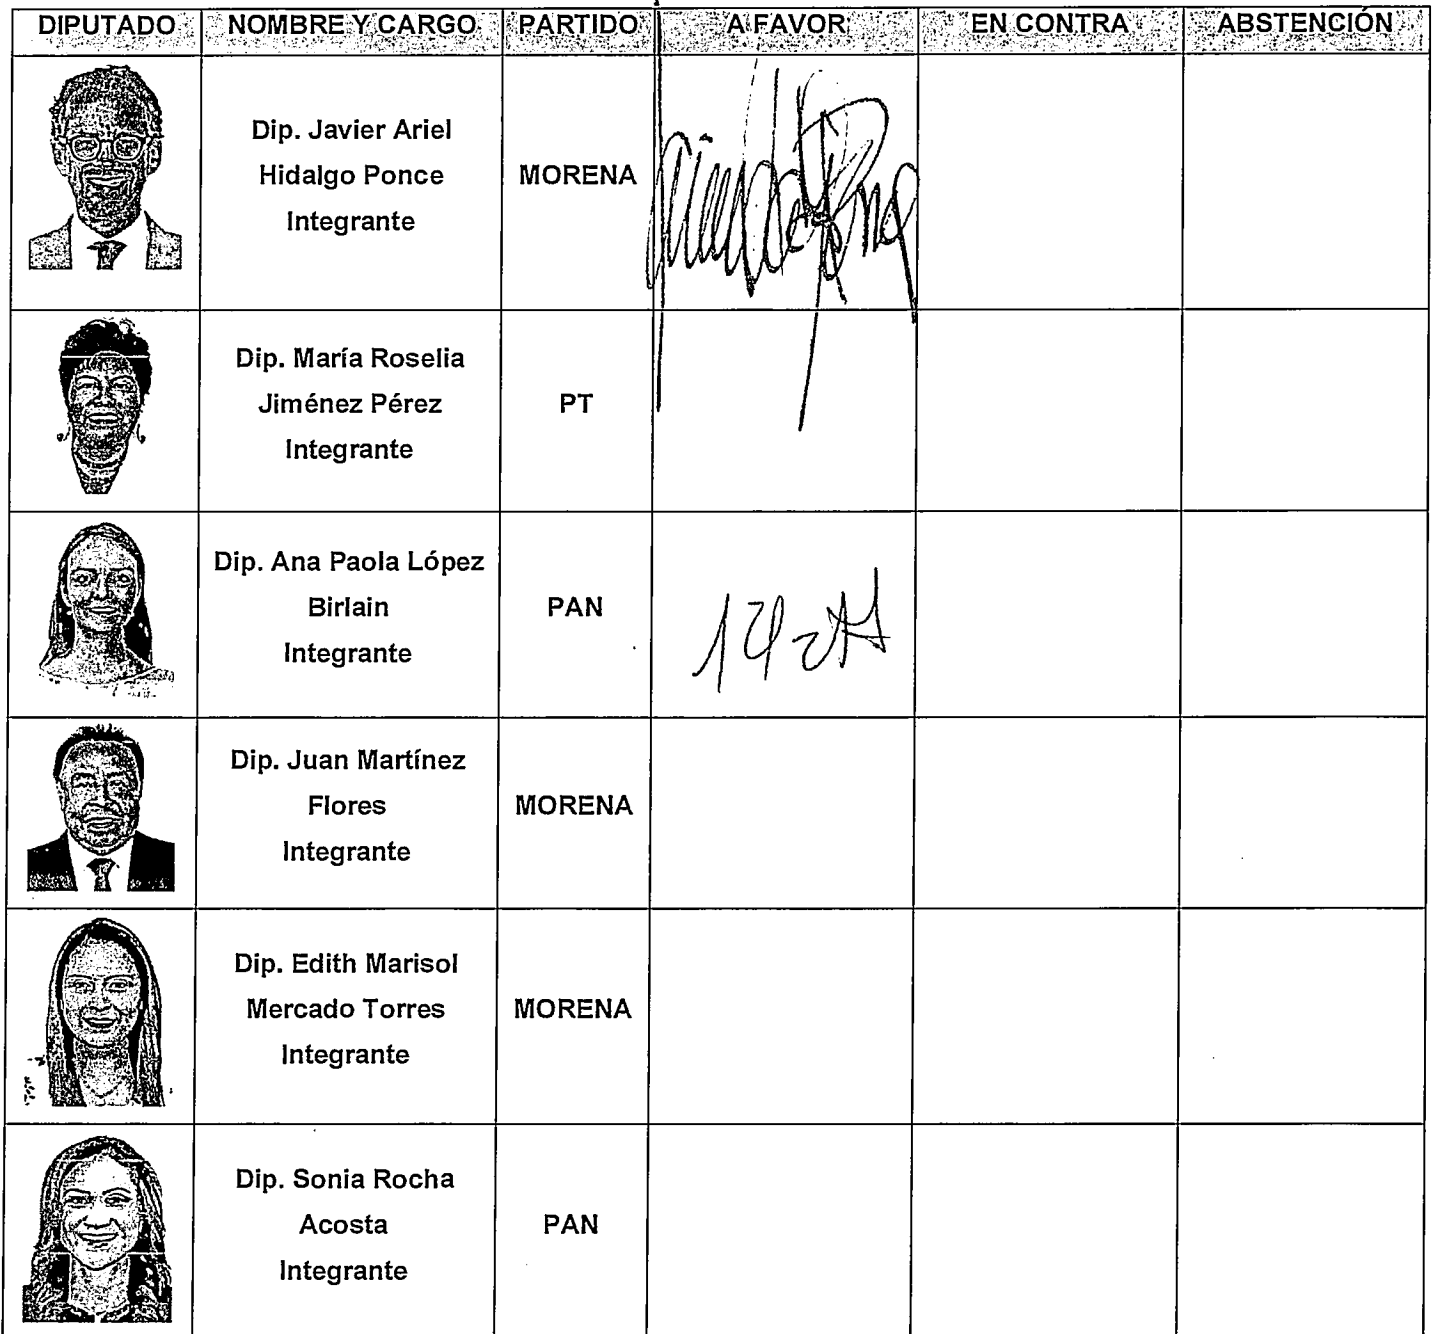 DIPUTADO NOMBRE Y CARGO PARTIDO A FAVOR EN CONTRA ABSTENCIÓN
Dip. Javier Ariel
Hidalgo Ponce
Integrante
MORENA
Dip. María Roselia
Jiménez Pérez
Integrante
PT
Dip. Ana Paola López
Birlain
Integrante
PAN
Dip. Juan Martínez
Flores
Integrante
MORENA
Dip. Edith Marisol
Mercado Torres
Integrante
MORENA
Dip. Sonia Rocha
Acosta
Integrante
PAN